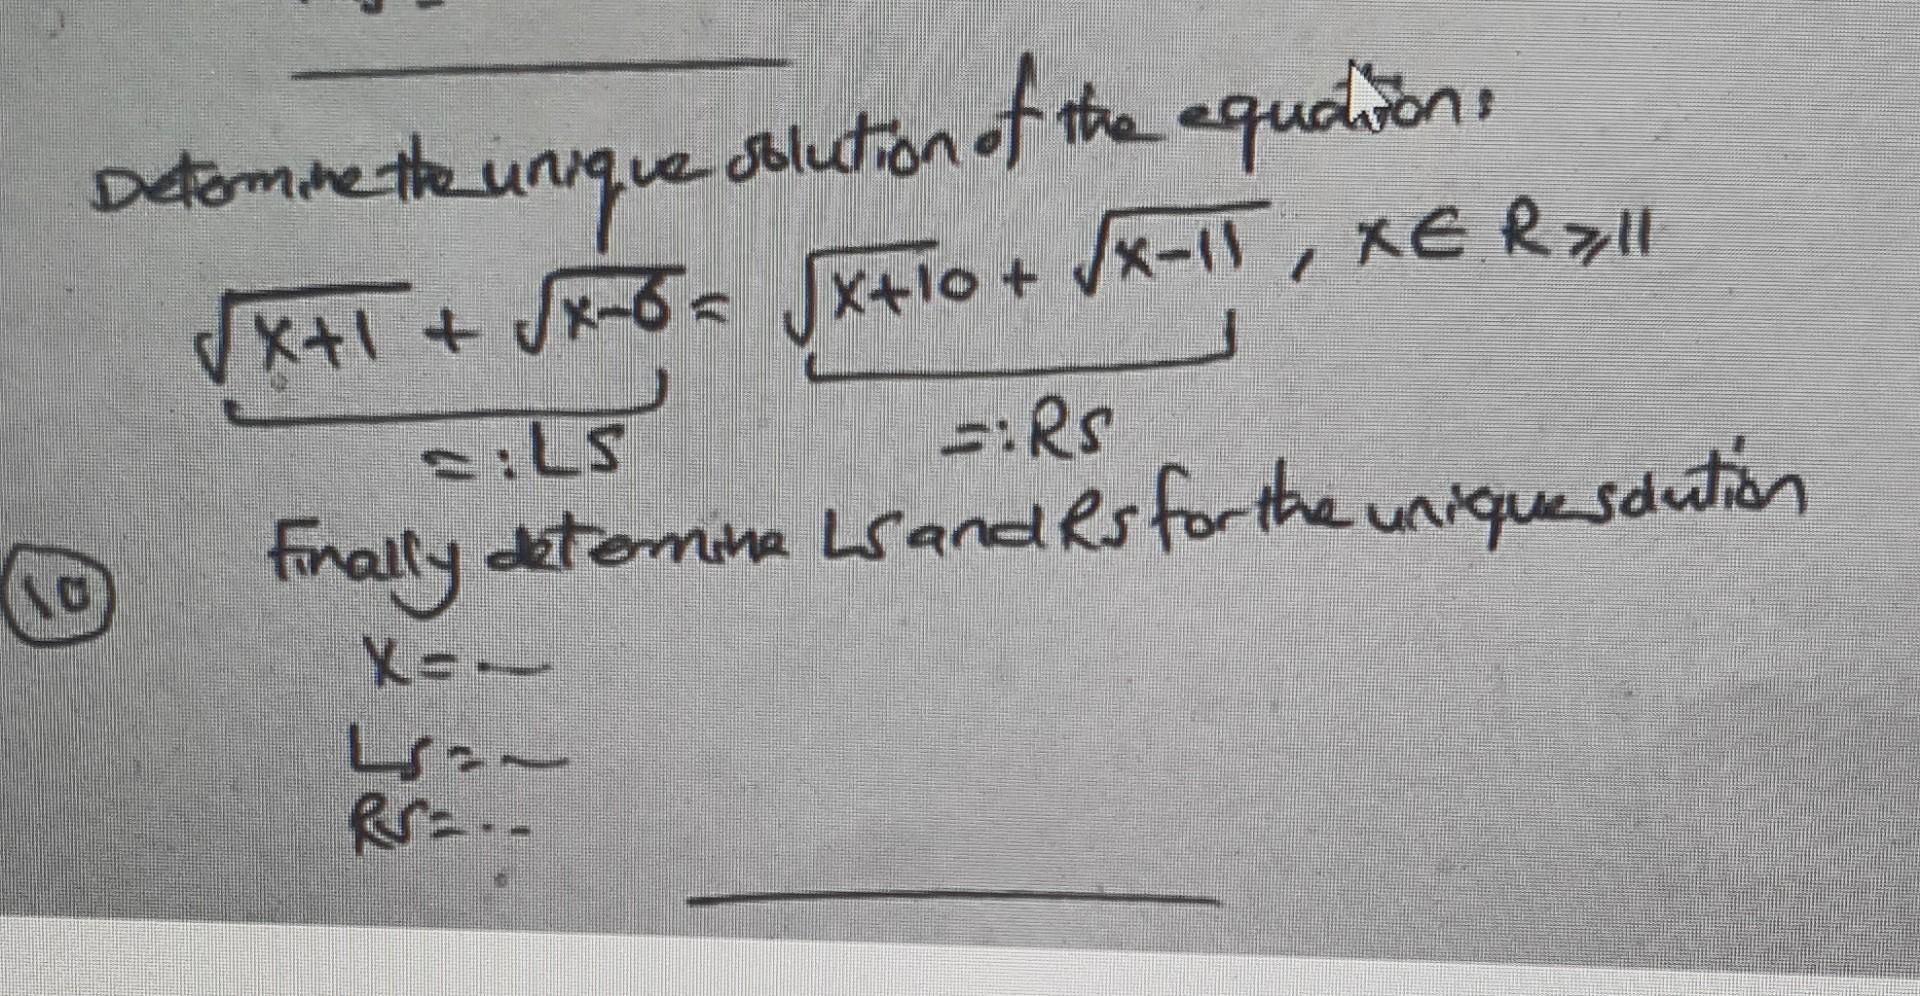 Determine the unique solution of the equation:
√x+1 + √x-6 = √x+10 + √x-11 , x∈ R ⩾11
=:LS =:RS
Finally determine LS and RS for the unique solution
10
X=—
LS=—
RS=...